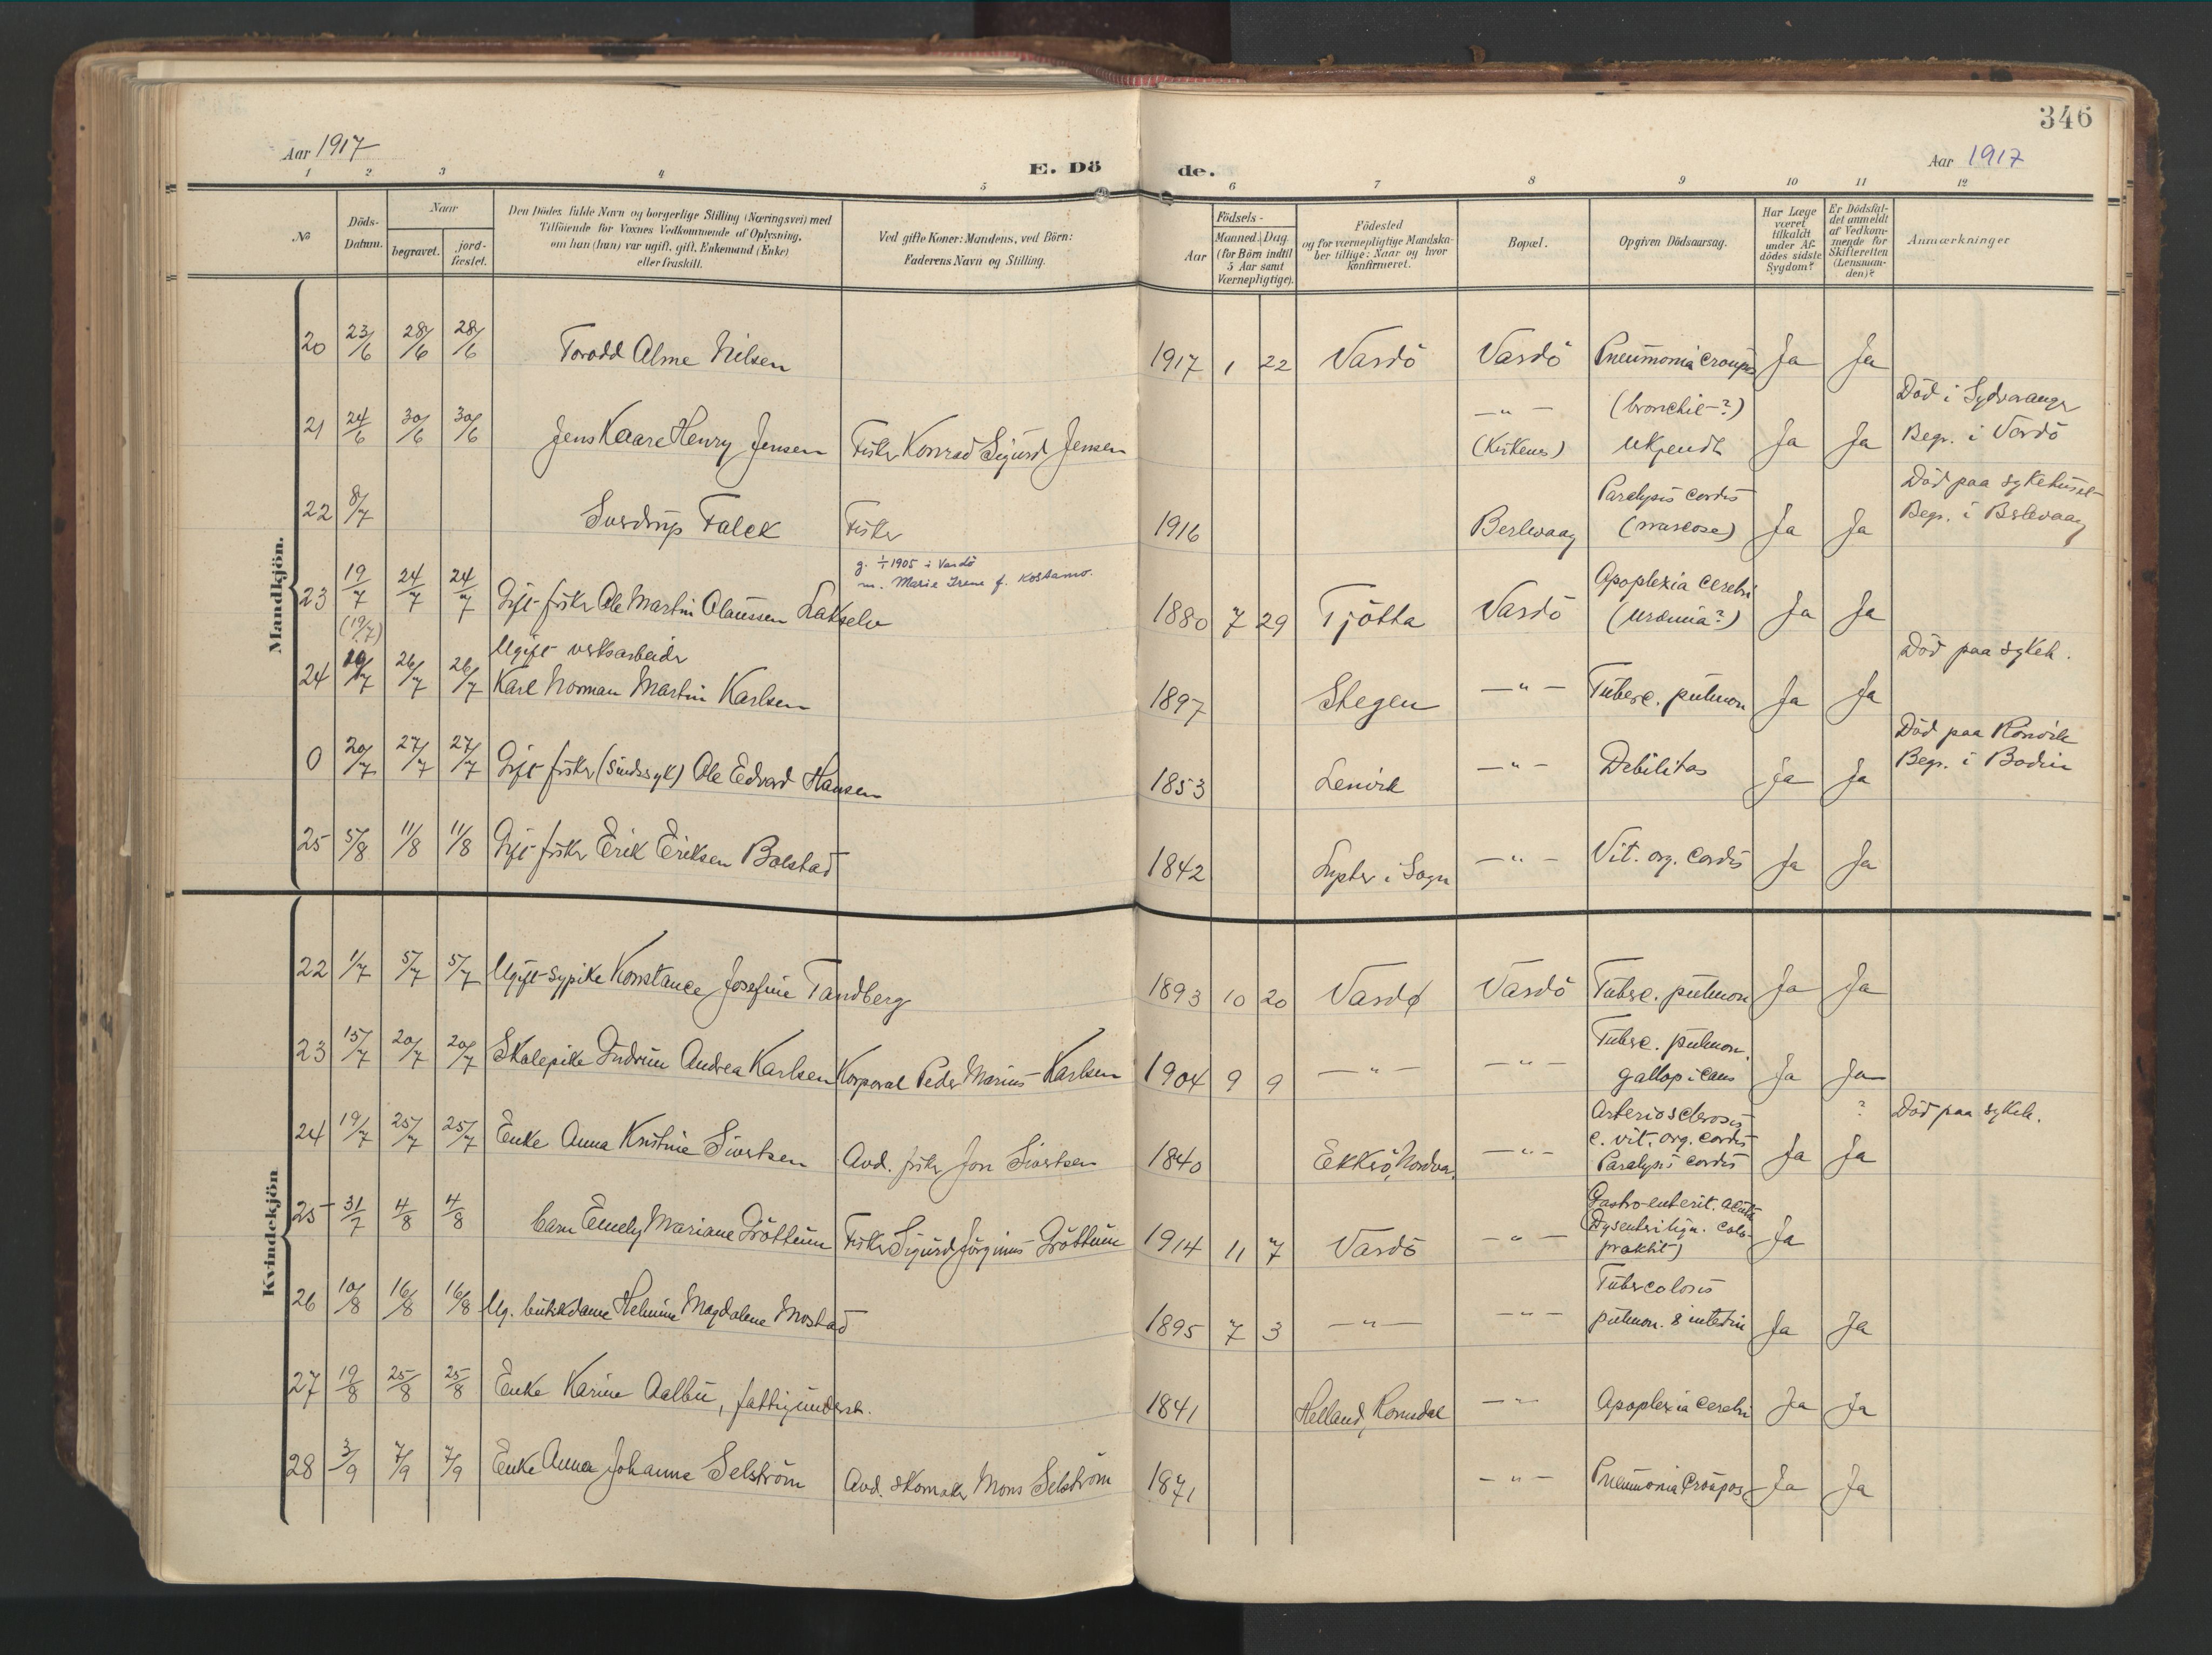 346
Aar 1917
E. Dö de.
Aar 1917
1 2 3 4 5 6 7 8 9 10 11 12
№
Döds-Datum.
Naar
begravet.
jord-fæstet.
Den Dödes fulde Navn og borgerlige Stilling (Næringsvei) med
Tilföiende for Voxnes Vedkommende af Oplysning,
om han (hun) var ugift, gift, Enkemand (Enke)
eller fraskilt.
Ved gifte Koner: Mandens, ved Börn:
Faderens Navn og Stilling.
Födsels-
Aar
Maaned. Dag
(for Börn indtil
5 Aar samt
Værnepligtige).
Födested
og for værnepligtige Mandska-
ber tillige: Naar og hvor
konfirmeret.
Bopæl.
Opgiven Dödsaarsag.
Har Læge
været
tilkaldt
under Af-
dödes sidste
Sygdom?
Er Dödsfal-
det anmeldt
af Vedkom-
mende for
Skifteretten
(Lensman-
den)?
Anmærkninger
Mandkjön.
20 23/6 28/6 28/6 Torodd Alme Nilsen 1917 1 22 Vardö Vardö Pneumonia croupos Ja Ja
(bronchie-?)
21 24/6 30/6 30/6 Jens Kaare Henry Jensen Fisker Konrad Sigurd Jensen -"- (Kirkenes) Ukjendt Ja Ja Död i Sydvaranger
Begr. i Vardö
22 8/7 Sverdrup Falck Fisker 1916 Berlevaag Paralysis cordis
Ja Ja Död paa sykehuset
Begr. i Berlevaag
g. 1/1 1905 i Vardö
m. Marie Irene f. Kostamo.
23 19/7 24/7 24/7 Gift fisker Ole Martin Olaussen Lakselv 1880 7 29 Tjötta Vardö Apoplexia cerebri
(Uræmia?) Ja Ja
(19/7)
Ugift verksarbeider
24 20/7 26/7 26/7 Karl Norman Martin Karlsen 1897 Stegen -"- Tuberc. pulmon Ja Ja Död paa sykeh.
0 20/7 27/7 27/7 Gift fisker (sindssyk) Ole Edvard Hansen 1853 Lenvik -"- Debilitas Ja Ja Död paa Rönvik
Begr. i Bodin
25 5/8 11/8 11/8 Gift fisker Erik Eriksen Bolstad 1842 Lyster i Sogn -"- Vit. org. cordis Ja Ja
Kvindekjön
22 1/7 5/7 5/7 Ugift sypike Konstance Josefine Tandberg 1893 10 20 Vardø Vardö Tuberc. pulmon Ja Ja
23 15/7 20/7 20/7 Skolepike Gudrun Andrea Karlsen Korporal Peder Marius Karlsen 1904 9 9 -"- -"- Tuberc. pulmon.
gallopicans Ja Ja
24 19/7 25/7 25/7 Enke Anna Kristine Sivertsen Avd. fisker Jon Sivertsen 1840 Ekkerö, Nordvar. -"- Arteriosclerosis
c. vit. org. cordis
Paralysis cordis Ja ? Ja Död paa sykeh.
25 31/7 4/8 4/8 barn Emely Mariane Gröttum Fisker Sigurd Jörginus Gröttum 1914 11 7 Vardö -"- Gastro-enterit. acuta
(Dysenterilign. colo-
proktit) Ja
26 10/8 16/8 16/8 Ug. butikdame Helmine Magdalene Mostad 1895 7 3 -"- -"- Tuberculosis
pulmon. & intestin Ja Ja
27 19/8 25/8 25/8 Enke Karine Aalbu, fattigunderst. 1841 Helland, Romsdal -"- Apoplexia cerebri Ja Ja
28 3/9 7/9 7/9 Enke Anna Johanna Selström Avd. skomaker Mons Selström 1871 -"- Pneumonia croupos Ja Ja